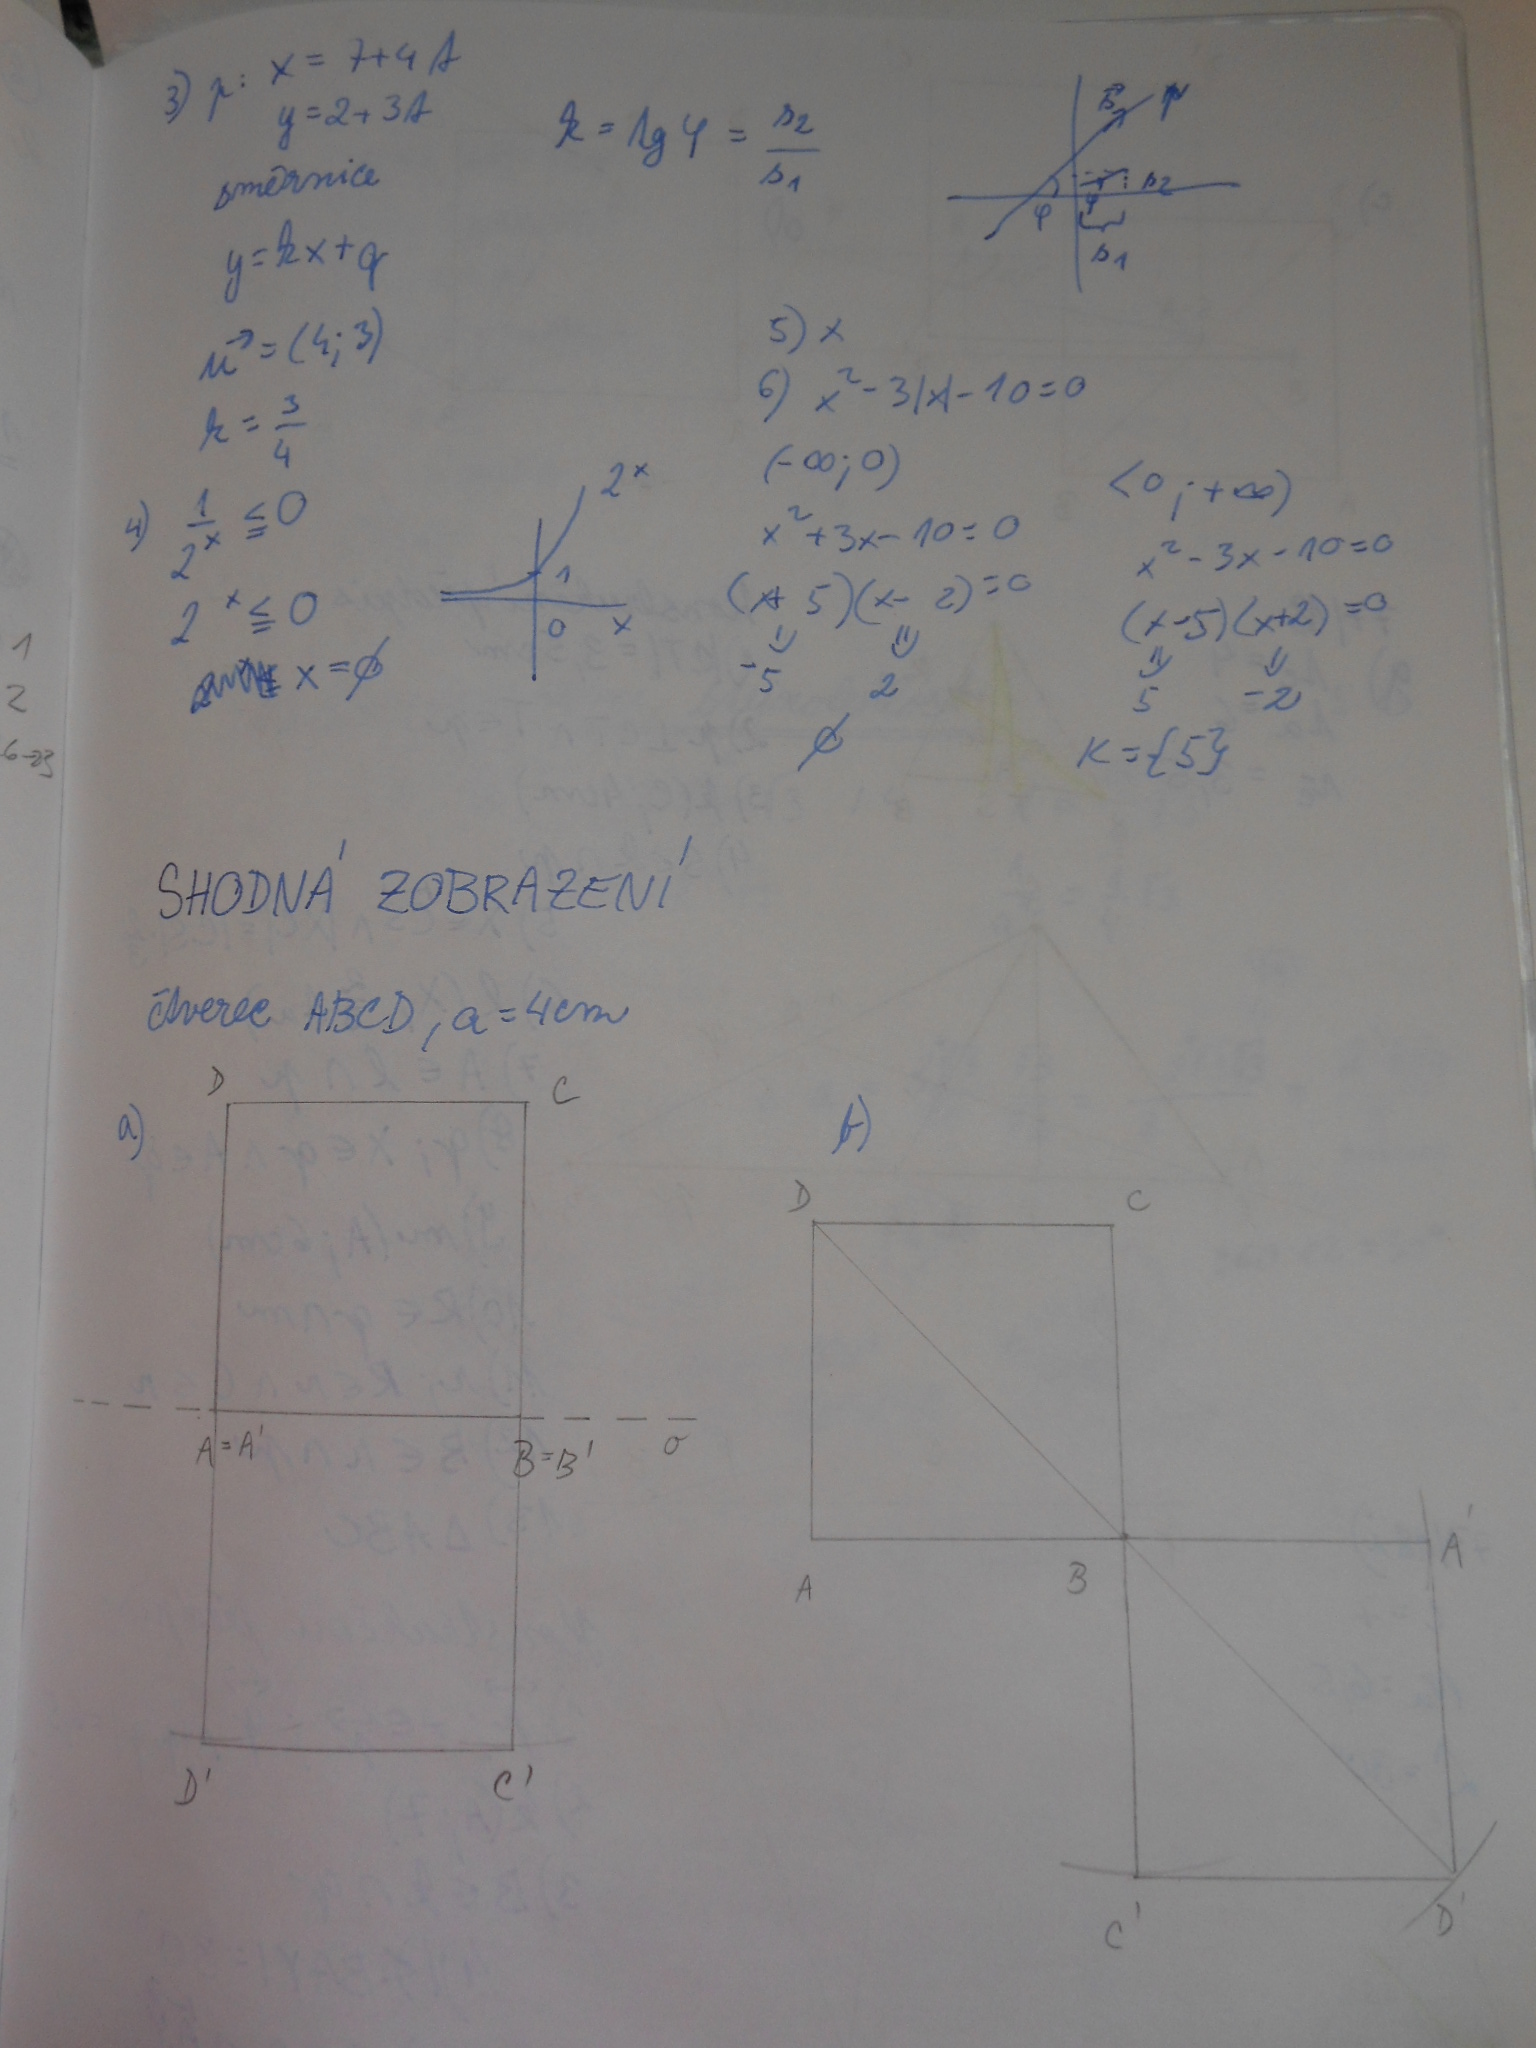 3) p: x = 7+4t
y = 2+3t
směrnice
y = kx + q
u⃗ = (4; 3)
k = 3/4
k = tg φ = s2/s1
s⃗ p
φ φ s2
s1
4) 1/2^x ≦ 0
2^x ≦ 0
x = ∅
2^x
1
0 x
5) x
6) x² - 3|x| - 10 = 0
(-∞; 0)
x² + 3x - 10 = 0
(x + 5)(x - 2) = 0
-5 2
∅
<0; +∞)
x² - 3x - 10 = 0
(x - 5)(x + 2) = 0
5 -2
K = {5}
1
2
SHODNÁ ZOBRAZENÍ
čtverec ABCD, a = 4cm
a)
D C
A = A' B = B' σ
D' C'
b)
D C
A B A'
C' D'